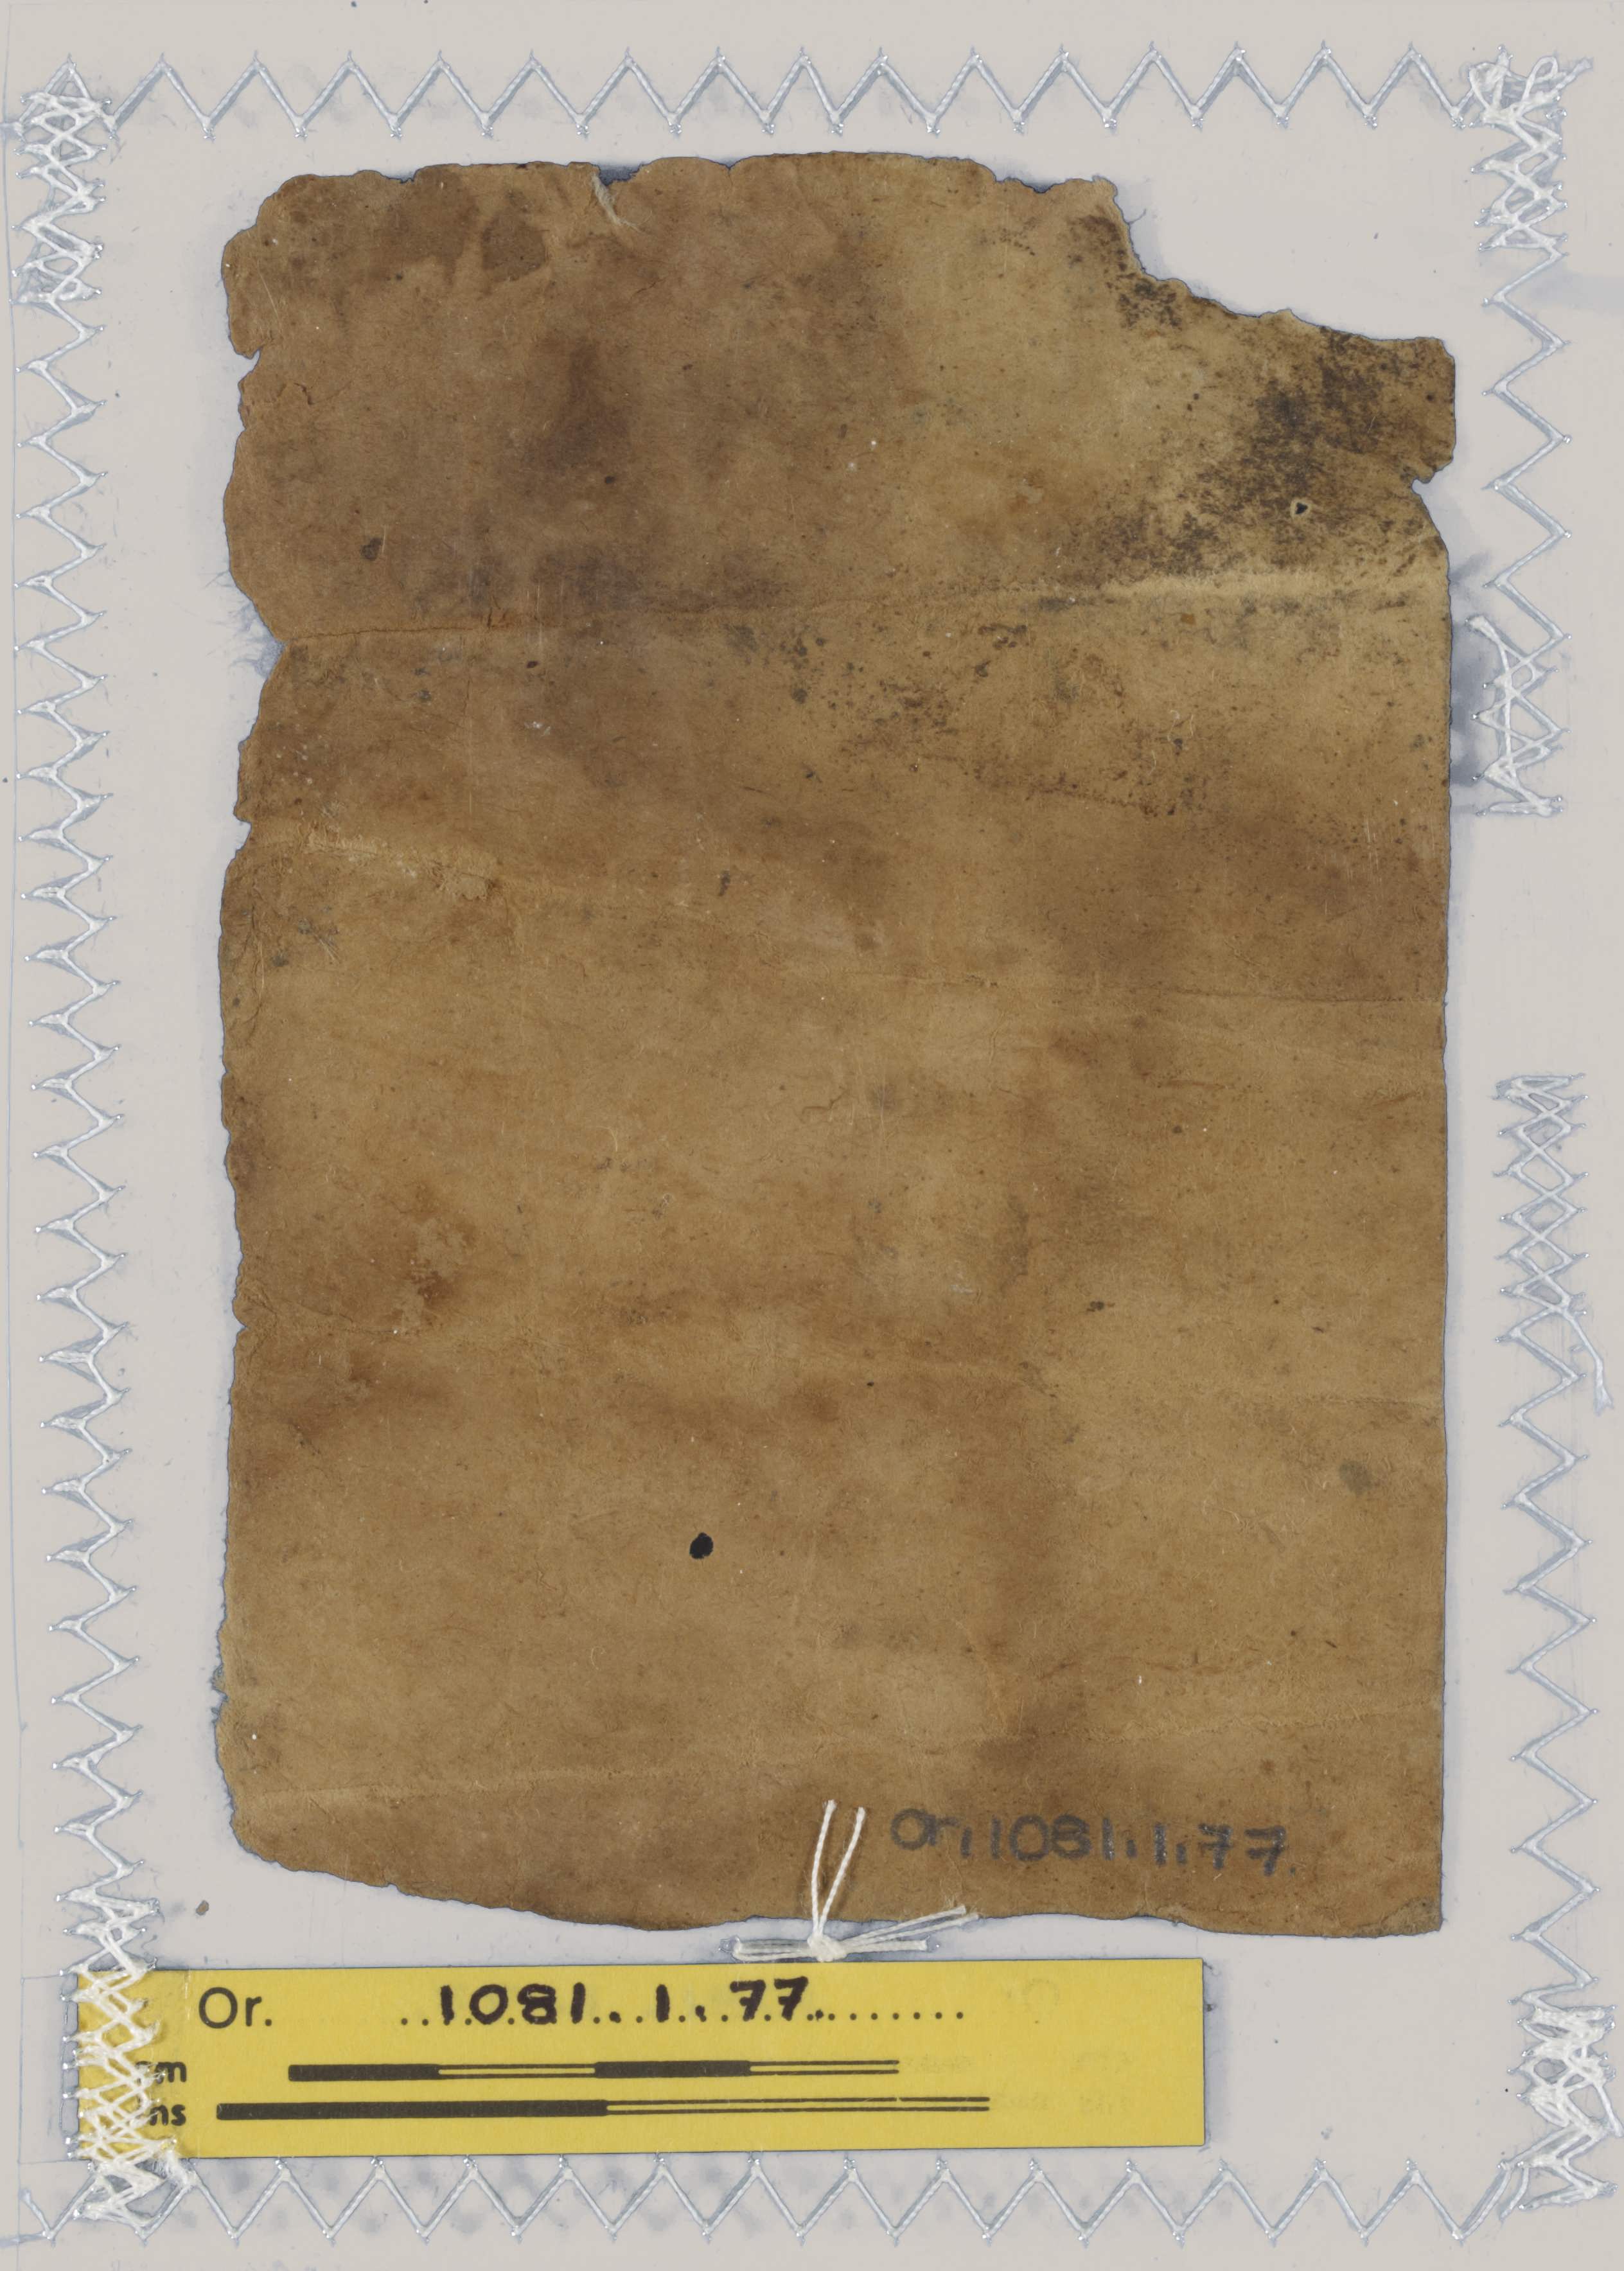 Or.1081.1.77.
Or. ..1.0.8.1...1...7.7.........
cm
ns